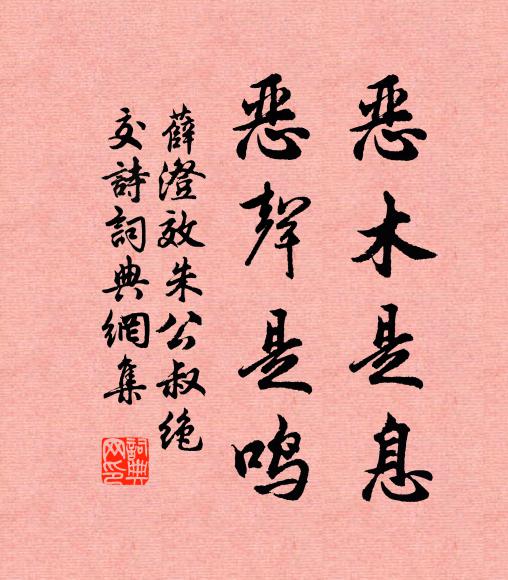 恶木是息
恶聲是鸣
薛澄效朱公叔绝
交詩詞典網集
詞典网印